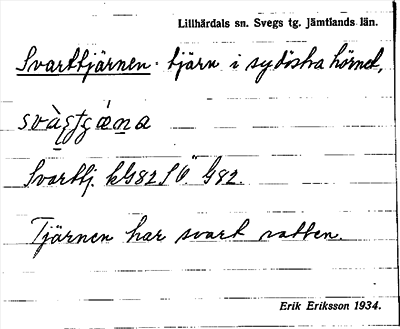 Lillhärdals sn. Svegs tg. Jämtlands län.
Svarttjärnen. tjärn i sydöstra hörnet,
Svarttj. G82.
Tjärnen har svart vatten.
Erik Eriksson 1934.